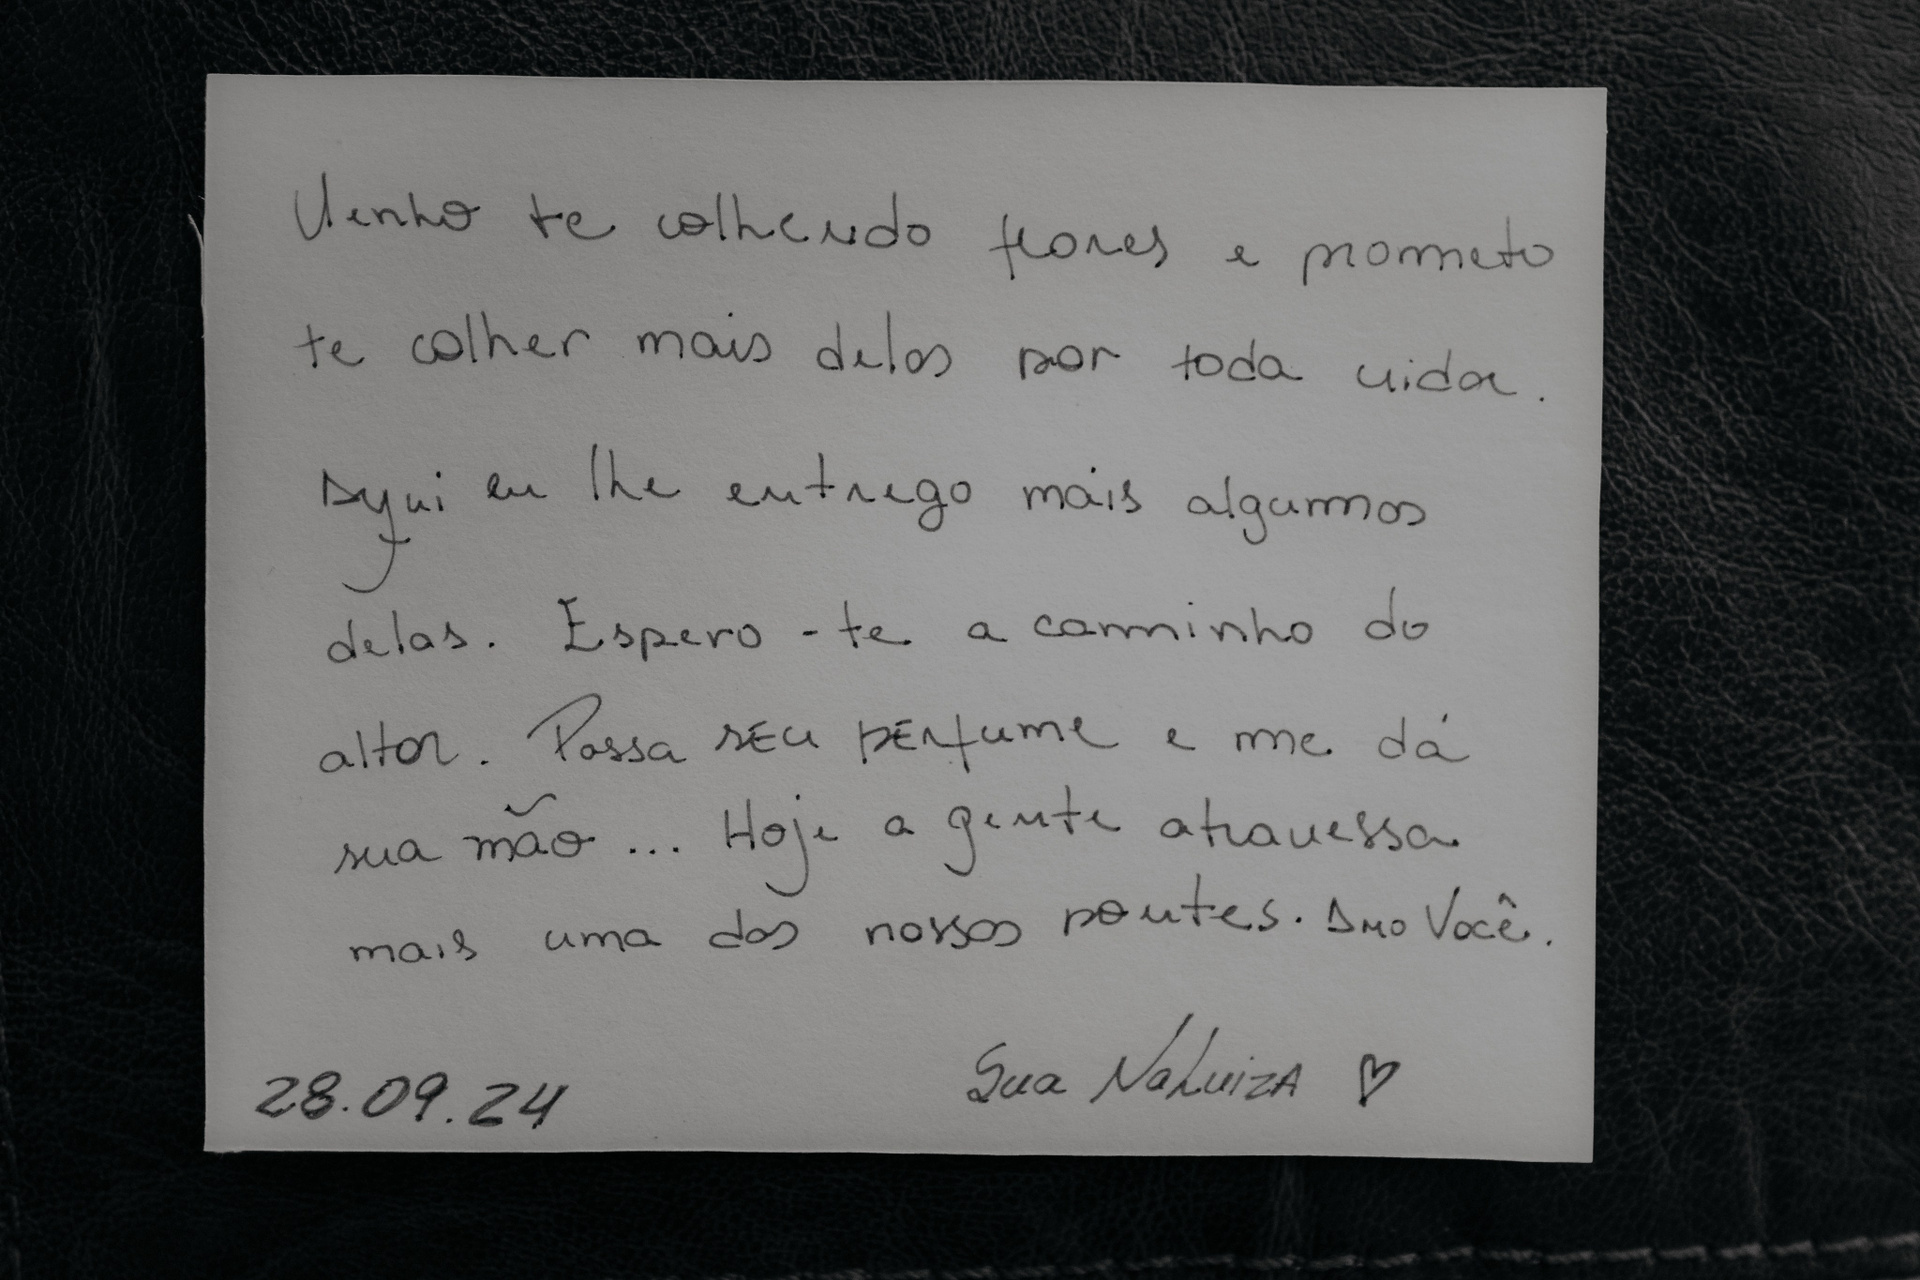 Venho te colhendo flores e prometo
te colher mais delas por toda vida.
Aqui eu lhe entrego mais algumas
delas. Espero-te a caminho do
altar. Passa seu perfume e me dá
sua mão... Hoje a gente atravessa
mais uma das nossas pontes. Amo Você.
Sua NaLuiza ♡
28.09.24